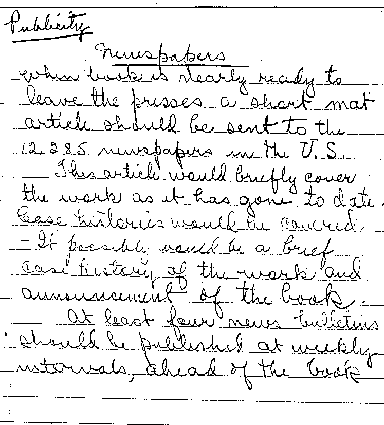 Publicity
Newspapers
When book is nearly ready to
leave the presses a short mat
article should be sent to the
12,285 newspapers in the U.S.
This article would briefly cover
the work as it has gone to date.
Case histories would be covered
- It possibly would be a brief
case history of the work and
announcement of the book.
At least four news bulletins
should be published at weekly
intervals, ahead of the book